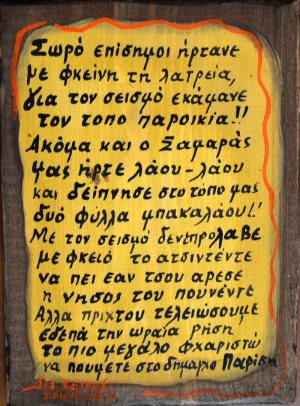 Σωρό επίσημοι ήρτανε
με φκείνη τη λατρεία,
για τον σεισμό εκάμανε
τον τόπο παροικία!!
Ακόμα και ο Σαμαράς
μας ήρτε λάου-λάου
και δείπνησε στο τόπο μας
δυό φύλλα μπακαλάου!!
Με τον σεισμό δενεπρόλαβε
με φκειό το ατσιντέντε
να πει εαν τσου αρεσε
η νησος του πουνέντε
Αλλα πριχτου τελειώσουμε
εδεπά την ωραία ρήση
το πιο μεγάλο φχαριστώ
να πούμετε στο δήμαρχο Παρίση